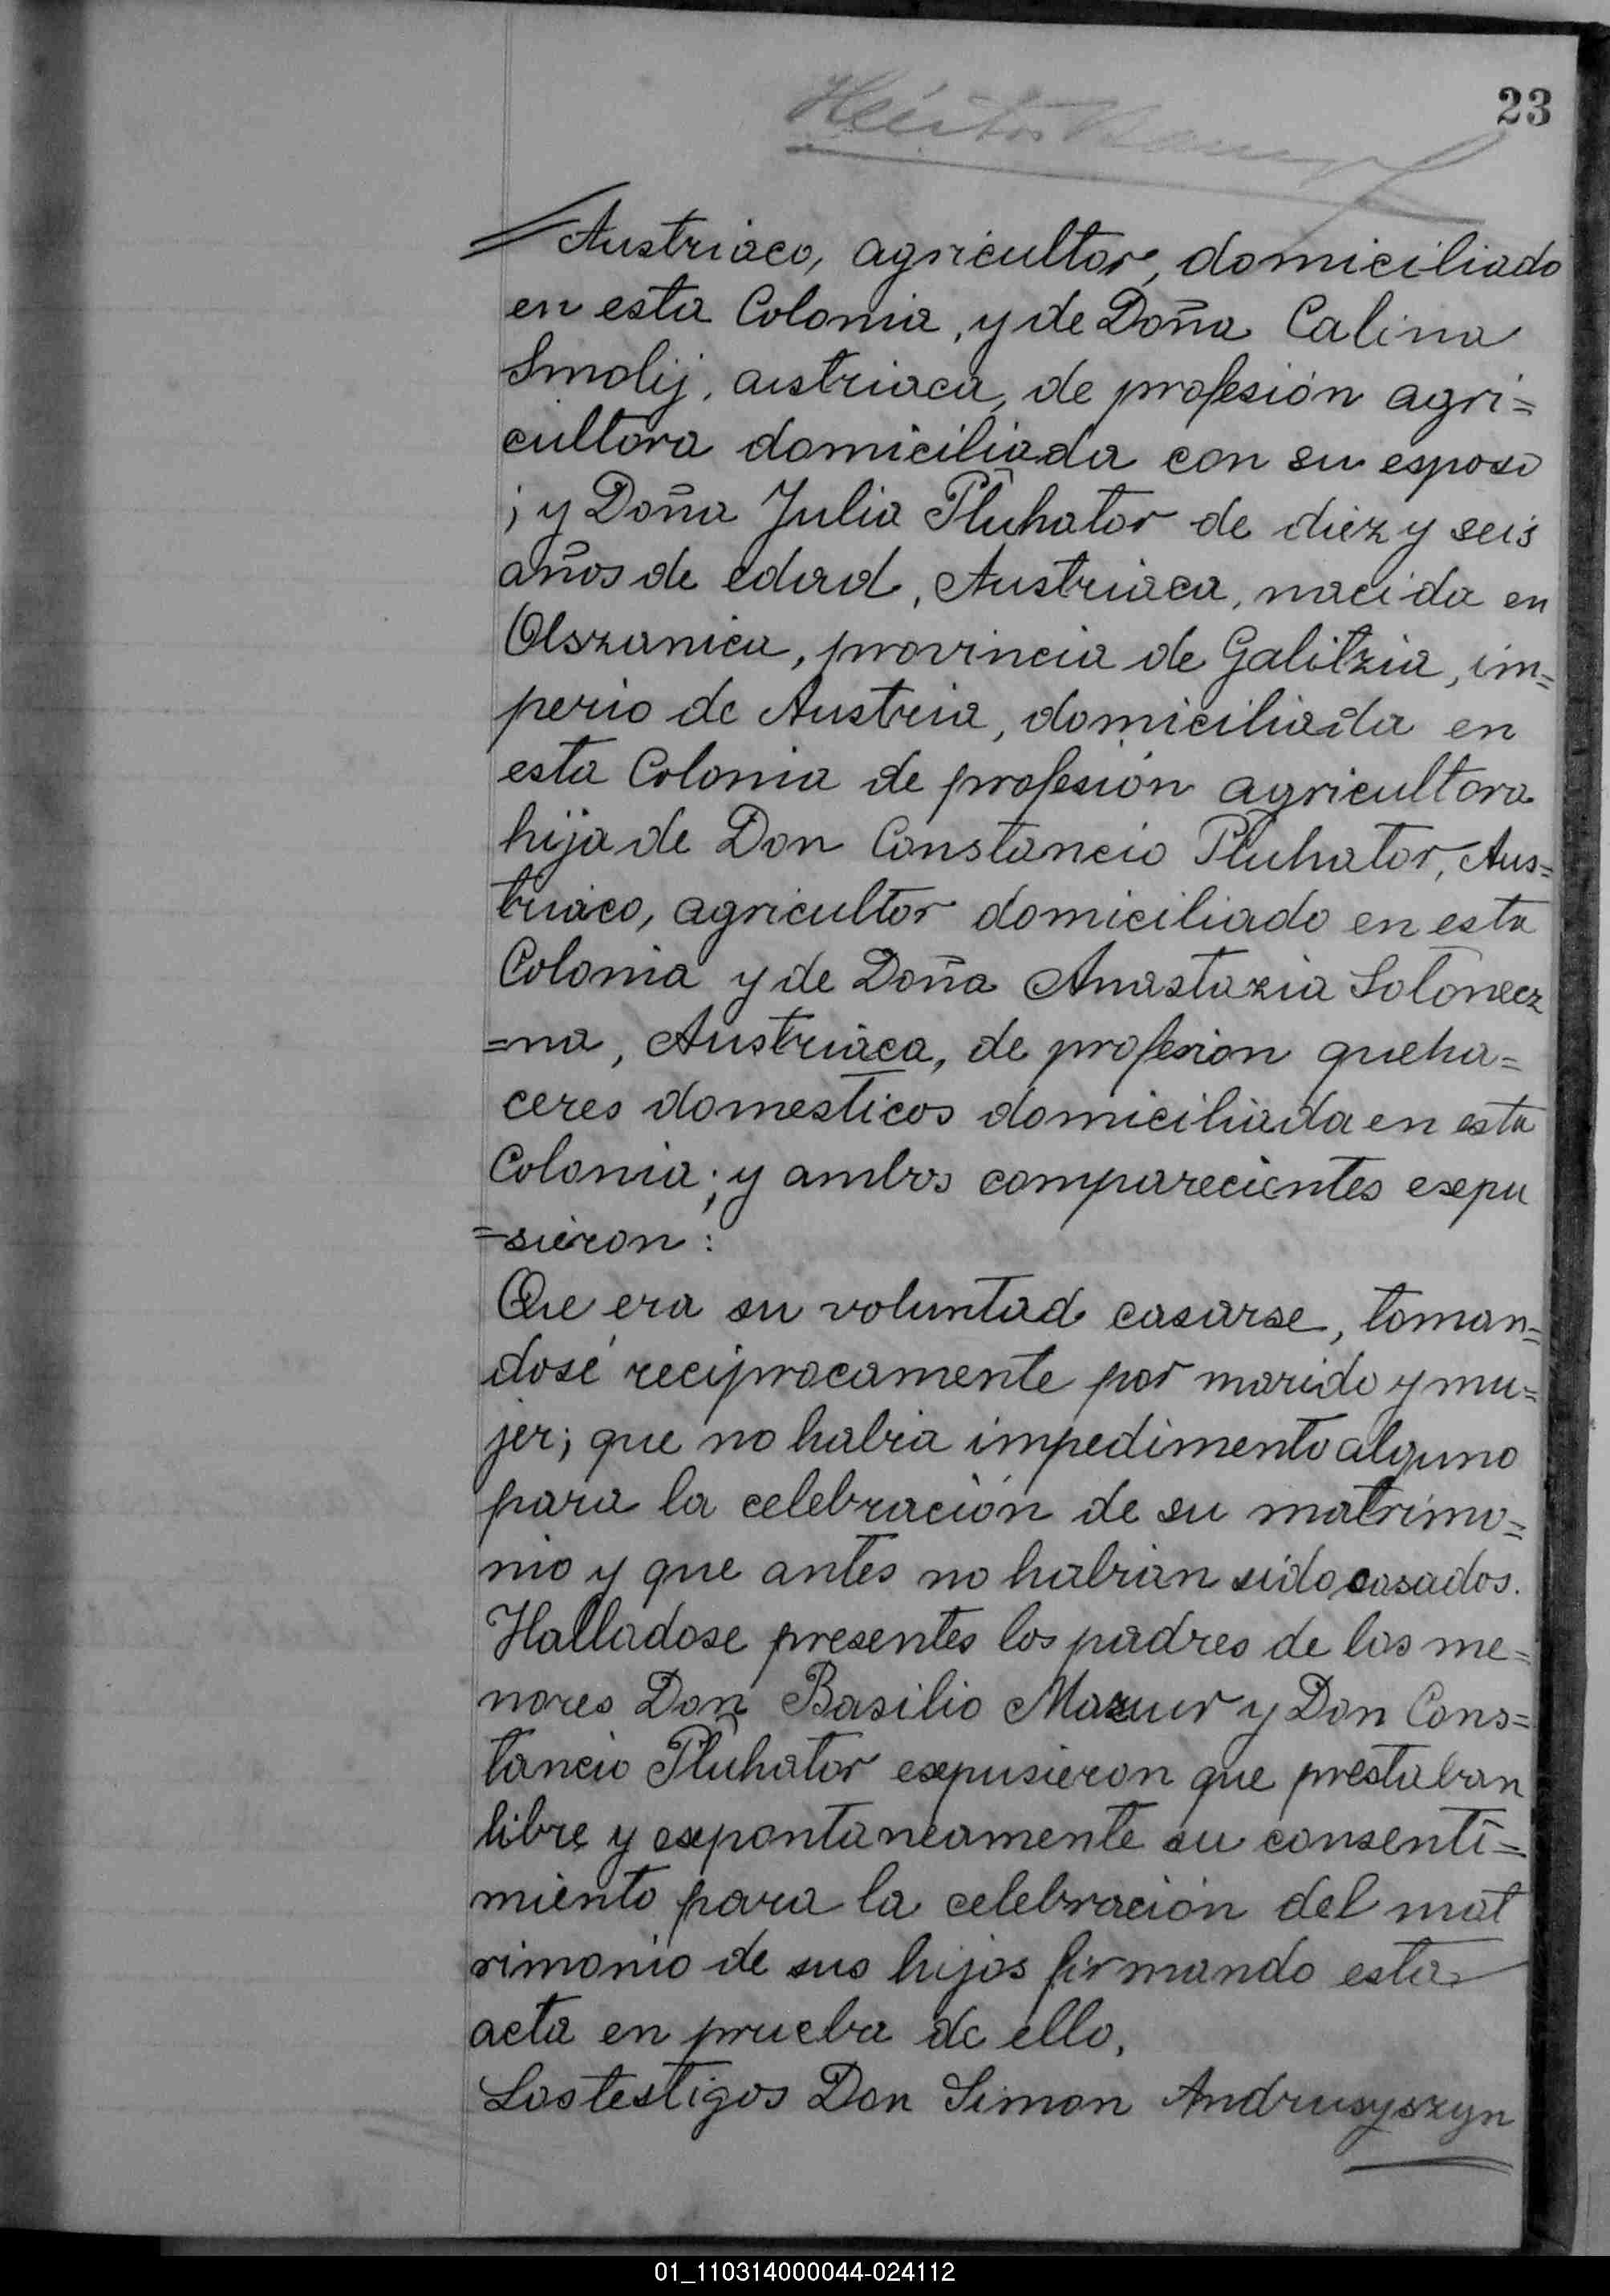 23
Austriaco, agricultor, domiciliado
en esta Colonia, y de Doña Calina
Smolij, austriaca, de profesión agri=
cultora domiciliada con su esposo
; y Doña Julia Pluhator de diez y seis
años de edad, Austriaca, nacida en
Olszanica, provincia de Galitzia, im=
perio de Austria, domiciliada en
esta Colonia de profesión agricultora
hija de Don Constancio Pluhator, Aus=
triaco, agricultor domiciliado en esta
Colonia y de Doña Anastazia Solonecz
=na, Austriaca, de profesion queha=
ceres domesticos domiciliada en esta
Colonia; y ambos comparecientes expu
=sieron:
Que era su voluntad casarse, toman=
dosé reciprocamente por marido y mu=
jer; que no habia impedimento alguno
para la celebración de su matrimo=
nio y que antes no habian sido casados.
Halladose presentes los padres de los me=
nores Don Basilio Mazur y Don Cons=
tancio Pluhator expusieron que prestaban
libre y expontaneamente su consenti=
miento para la celebración del mat
rimonio de sus hijos firmando esta
acta en prueba de ello,
Los testigos Don Simon Andrusyszyn
01_110314000044-024112